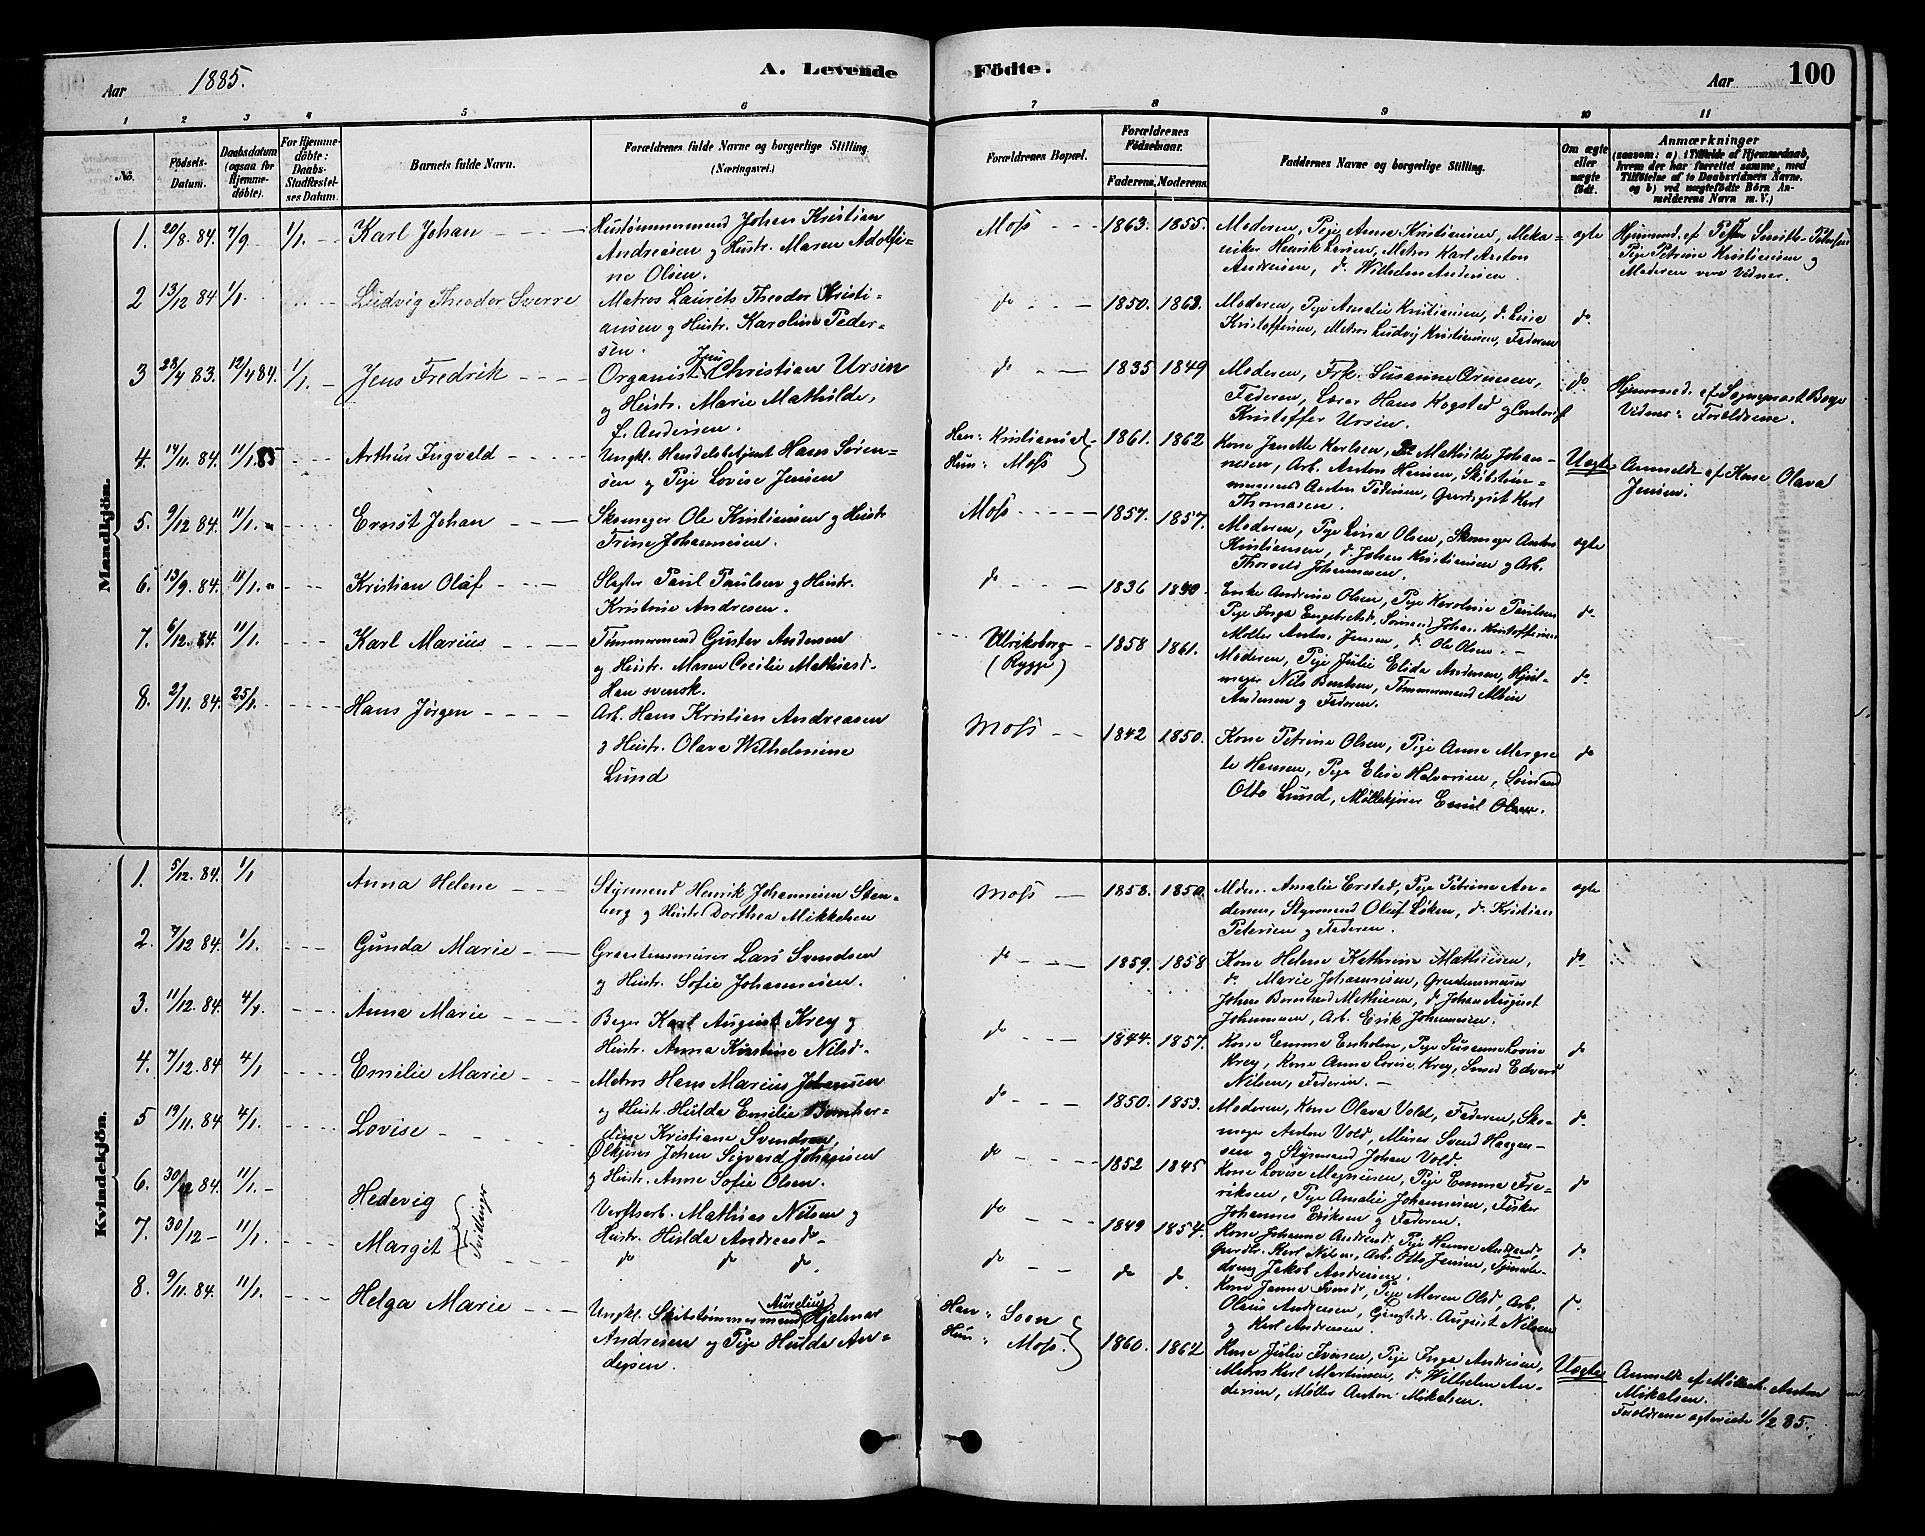 Aar 1885. A. Levende Födte. Aar 100
1 2 3 4 5 6 7 8 9 10 11
No. Födsels-Datum. Daabsdatum (ogsaa for Hjemmedöbte). For Hjemmedöbte: Daabs-Stadfæstelses Datum. Barnets fulde Navn. Forældrenes fulde Navne og borgerlige Stilling. (Næringsvei.)
Forældrenes Bopæl. Forældrenes Födselsaar. Faderens. Moderens. Faddernes Navne og borgerlige Stilling. Om ægte eller uægte födt.
Anmærkninger
(saasom: a) i Tilfælde af Hjemmedaab, hvem der har forrettet samme, med Tilföielse af to Daabsvidners Navne, og b) ved uægtefödte Börn Anmelderens Navn m. V.)
Mandkjön.
1. 20/8 84. 7/9 1/1. Karl Johan
Hustømmermand Johan Kristian
Andreasen og Hustr. Maren Adolfi-
ne Olsen.
Moss 1863. 1855.
Moderen, Pige Anna Kristiansen, Meka-
niker Henrik Larsen, Matros Karl Anton
Andresen, do Wilhelm Andersen
ægte
Pige Petrine Kristiansen og
Moderen vare Vidner.
2 13/12 84 1/1. Ludvig Theodor Sverre
Matros Laurits Theodor Kristi-
ansen og Hustr. Karoline Peder-
sen.
do 1850. 1863.
Moderen, Pige Amalie Kristiansen, do Lina
Kristoffersen, Matros Ludvig Kristiansen, Faderen
do.
3 23/4 83. 12/4 84. 1/1. Jens Fredrik
Organist Jens Christian Ursin
og Hustr. Marie Mathilde,
f. Andersen.
do 1835 1849
Moderen, Frk. Susanne Arnesen,
Faderen, Lærer Hans Kogsted og
Kristoffer Ursin.
do.
Hjemmed. af Sogneprest
Vidner: Forældrene.
4. 14/11. 84. 11/1. 85 Arthur Ingvald
Ungkl. Handelsbetjent Hans Søren-
sen og Pige Lovise Jensen
Han: Kristiania
Hun: Moss
1861. 1862
Kone Janette Karlsen, Mathilde Johan-
nesen, Arb. Anton Hansen, Skibstøm-
mermand Anton Pedersen, Gaardsgut Karl
Thomasen.
Uægte
Anmeldt af Kone Olava
Jensen.
5. 9/12 84. 11/1. Ernst Johan
Skomager Ole Kristiansen og Hustr
Trine Johannesen.
Moss 1857. 1857.
Moderen, Pige Lina Olsen, Skomager Anton
Kristiansen, do Johan Kristiansen og Arb.
Thorvald Johannesen.
ægte
6. 13/9. 84. 11/1. Kristian Olaf
Slagter Paul Paulsen og Hustr.
Kristine Andresen.
do 1836 1840.
Enke Andrine Olsen, Pige Karoline Paulsen
Møller Anton Jensen, do Ole Olsen.
do
7. 6/12. 84. 11/1. Karl Marius
Tømmermand Gustav Andersen
og Hustr. Maren Cecilie Mathiasd.
Han svensk.
Ulriksborg
(Rygge)
1858 1861.
Moderen, Pige Julie Elida Andersen, Hjul-
mager Nils Berntsen, Tømmermand Albin
Andersen og Faderen.
do
8. 2/11. 84. 25/1. Hans Jørgen
Arb. Hans Kristian Andreasen
og Hustr. Olava Wilhelmine
Lund
Moss 1842 1850.
Kone Petrine Olsen, Pige Anna Margre-
te Hansen, Pige Elise Halvorsen, Sømand
Otto Lund, Møllekjører Emil Olsen.
do
Kvindekjön.
1. 5/12. 84. 1/1 Anna Helene
Styrmand Henrik Johannesen Sten-
berg og Hustr Dorthea Mikkelsen
Moss 1858. 1850.
Amalie Ersted, Pige Petrine An-
dersen, Styrmand Oluf Løken, do Kristian
Petersen og Faderen.
ægte
2. 7/12 84. 1/1. Gunda Marie
Graastensmurer Lars Svendsen
og Hustr. Sofie Johannesen.
do 1859. 1858
Kone Helene Kathrine Mathiesen,
do Marie Johannesen,
Johan Bernhard Mathiesen, do Johan August
Johannesen, Arb. Erik Johannesen.
do
3. 11/12. 84. 4/1. Anna Marie
Bager Karl August Krey og
Hustr. Anna Kirstine Nilsd.
do 1844. 1857.
Kone Emma Enholm, Pige Susanne Lovise
Krey, Kone Anna Lovise Krey, Smed Edvard
Nilsen, Faderen.
do
4. 7/12. 84 4/1 Emilie Marie
Matros Hans Marius Johansen
og Hustr. Hulda Emilie
Kristiane Svendsen,
do 1850. 1853.
Moderen, Kone Olava Vold, Faderen, Sko-
mager Anton Vold, Murer Svend Haagen-
sen og Styrmand Johan Vold.
do
5 19/11. 84 4/1. Lovise
Ølkjører Johan Sigvard Johansen
og Hustr. Anne Sofie Olsen.
do 1852 1845
Kone Lovise Magnussen, Pige Emma Fre-
driksen, Pige Amalie Johannesen, Fisker
Johannes Eriksen og Faderen.
do
6. 30/12 84. 11/1. Hedevig
Tvillinger
Verftsarb. Mathias Nilsen og
Hustr. Hulda Andreasd.
do 1849 1854.
Kone Johanne Andreasd. Pige Hanna Andreasd,
Gaardbr. Karl Nilsen, Arb. Otto Jensen, Tjeneste-
dreng Jakob Andresen.
do
7. 30/12 11/1. Margit
do do do.
do do do
Kone Janna Pige Maren Olsd, Arb.
Olaus Andersen, August Nilsen
og Karl Andersen.
do
8. 9/11. 84. 11/1. Helga Marie
Ungkl. Skibstømmermand Aurelius Hjalmar
Andresen og Pige Hulda An-
dersen.
Han: Soon
Hun: Moss.
1860. 1862
Kone Julie Iversen, Pige Inga Andresen,
Matros Karl Martinsen, do Wilhelm An-
dersen, Møller Anton Mikalsen.
Uægte
Anmeldt af Møllerk. Anton
Mikalsen.
Forældrene ægteviede 1/2 85.